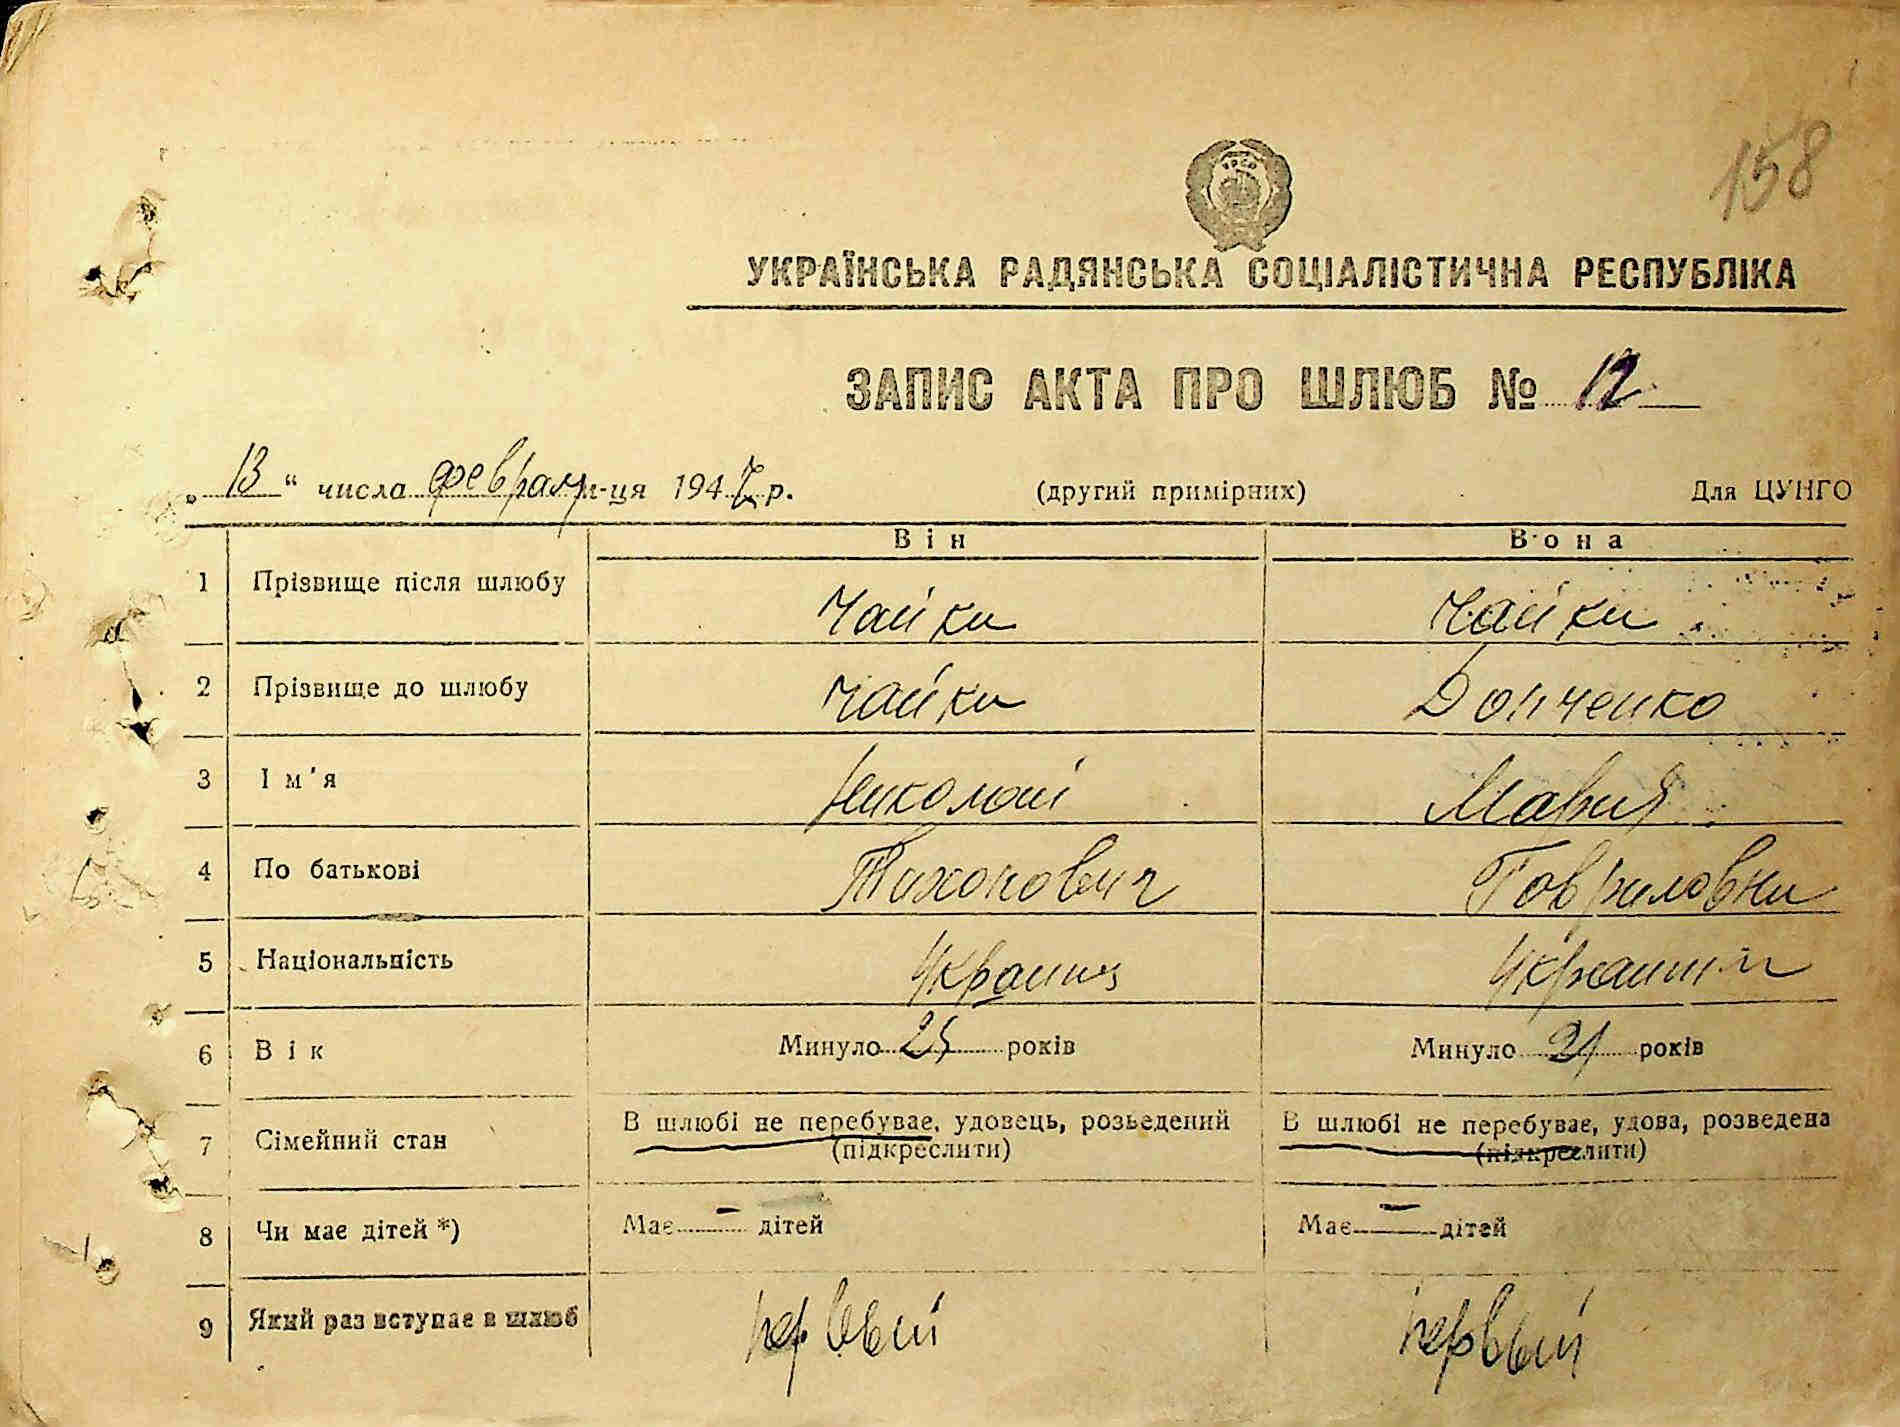 158
УРСР
УКРАЇНСЬКА РАДЯНСЬКА СОЦІАЛІСТИЧНА РЕСПУБЛІКА
ЗАПИС АКТА ПРО ШЛЮБ № 12
„13“ числа феврал м-ця 1947 р. (другий примірних) Для ЦУНГО
Він Вона
1 Прізвище після шлюбу Чайка Чайка
2 Прізвище до шлюбу Чайка
3 Ім'я Николай Мария
4 По батькові Тихонович Гавриловна
5 Національність Украинец Украинка
6 Вік Минуло 25 років Минуло 21 років
7 Сімейний стан В шлюбі не перебуває, удовець, розведений В шлюбі не перебуває, удова, розведена
(підкреслити) (підкреслити)
8 Чи має дітей *) Має — дітей Має — дітей
9 Який раз вступає в шлюб первый первый